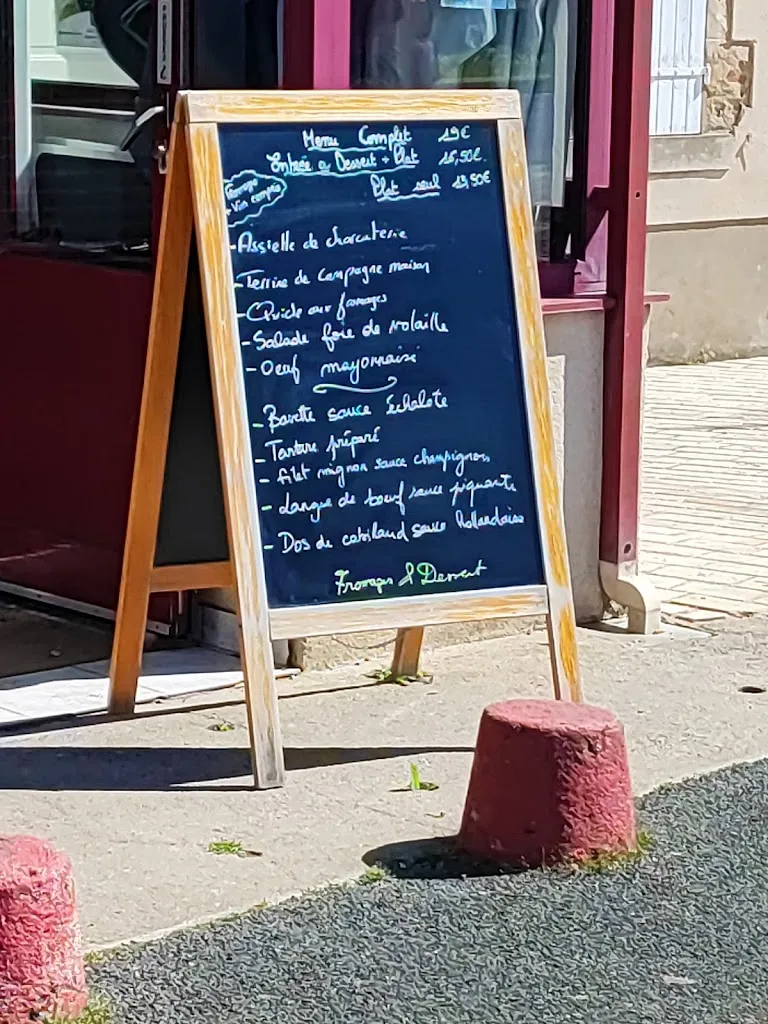 Menu Complet 19€
Entrée a Dessert + Plat 16,50€
Plat seul 13,50€
Fromage
+ Vin compris
- Assiette de charcuterie
- Terrine de campagne maison
- Quiche aux fromages
- Salade foie de volaille
- Oeuf mayonnaise
- Bavette sauce échalote
- Tartare préparé
- filet mignon sauce champignon
- Langue de boeuf sauce piquante
- Dos de cabillaud sauce hollandaise
Fromages & Dessert